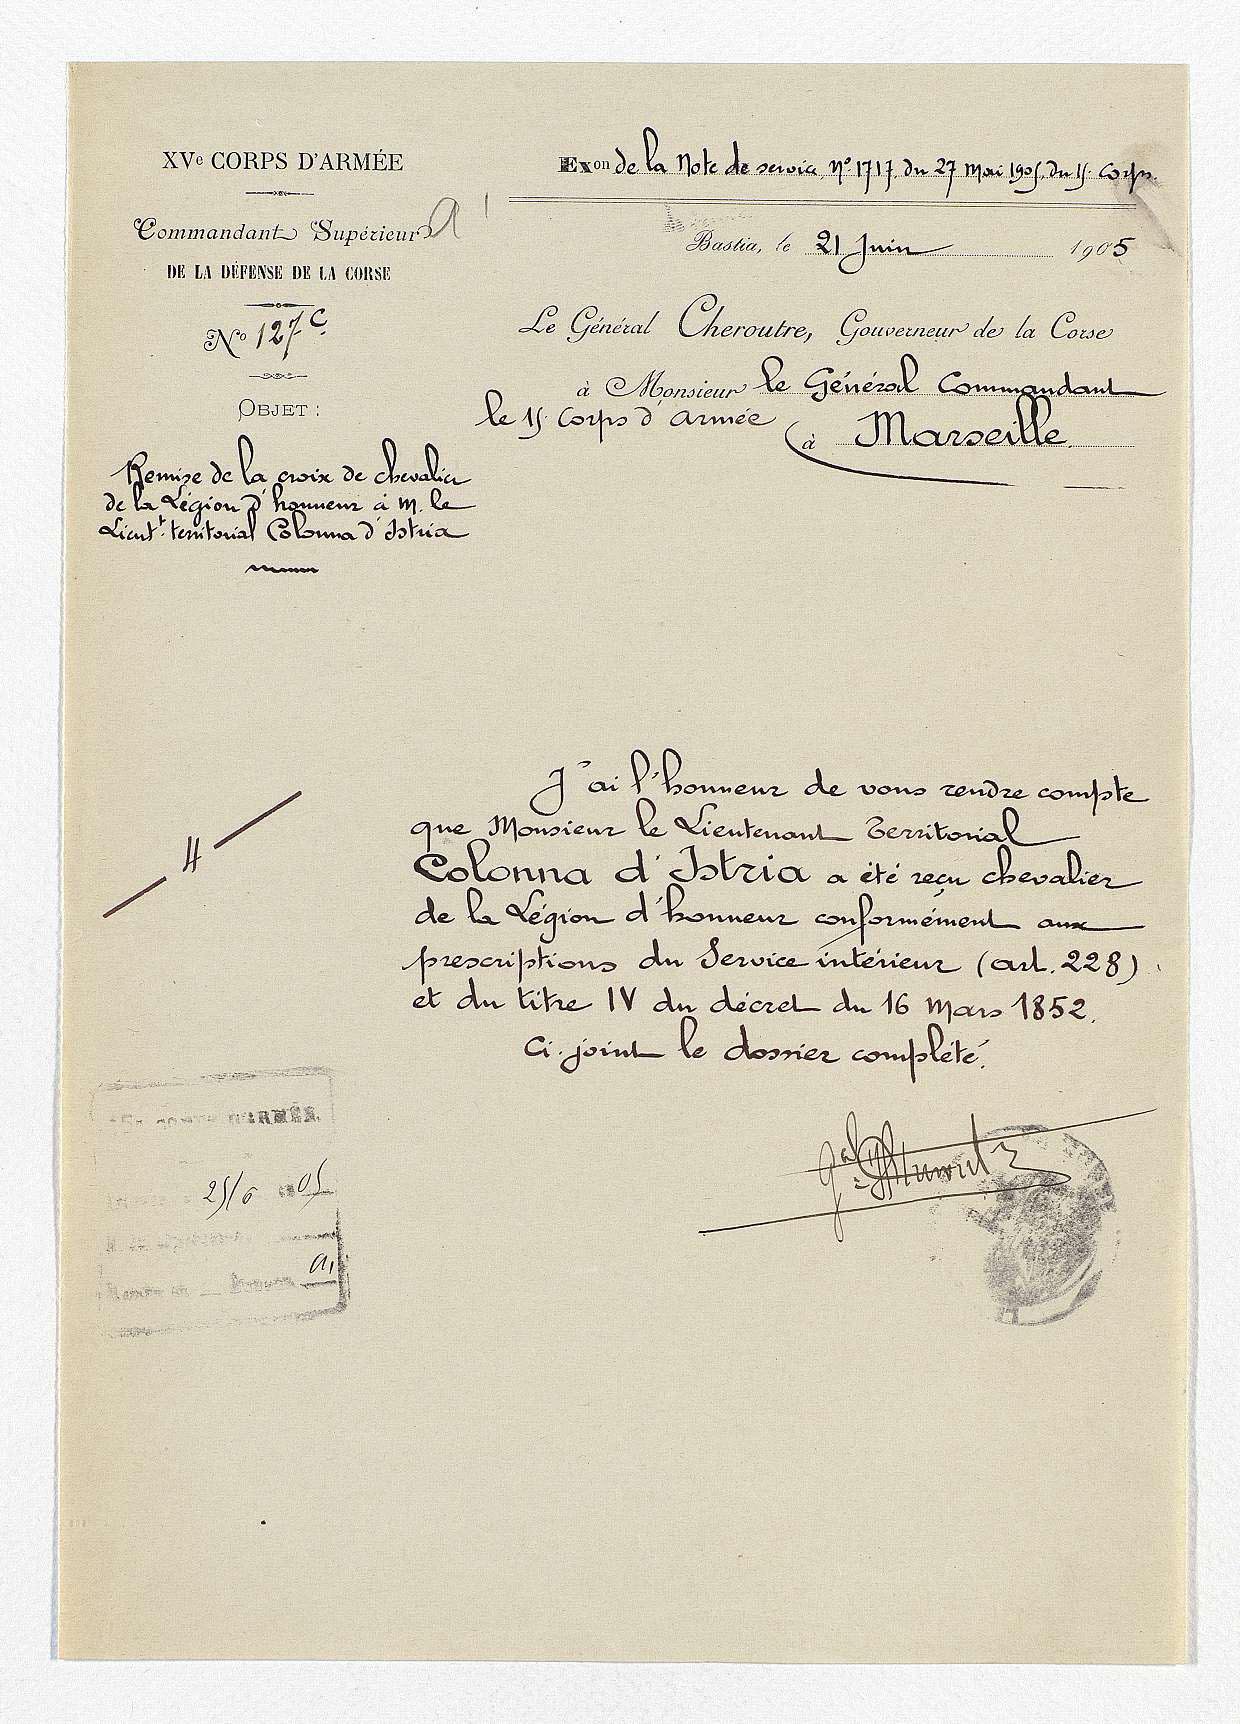 XVe CORPS D'ARMÉE
Commandant Supérieur
DE LA DÉFENSE DE LA CORSE
No 127 c
OBJET :
Remise de la croix de chevalier
de la Légion d'honneur à M. le
Lieutt. territorial Colonna d'Istria
Exon de la Note de service No. 1717, du 27 Mai 1905, du 15. Corps.
Bastia, le 21 Juin 1905
Le Général Cheroutre, Gouverneur de la Corse
à Monsieur le Général Commandant
le 15 Corps d'Armée
à Marseille.
J'ai l'honneur de vous rendre compte
que Monsieur le Lieutenant Territorial
Colonna d'Istria a été reçu chevalier
de la Légion d'honneur conformément aux
prescriptions du Service intérieur (art. 228)
et du titre IV du décret du 16 Mars 1852.
Ci-joint le dossier complété.
Gal
D'ARMÉE
25/6 05